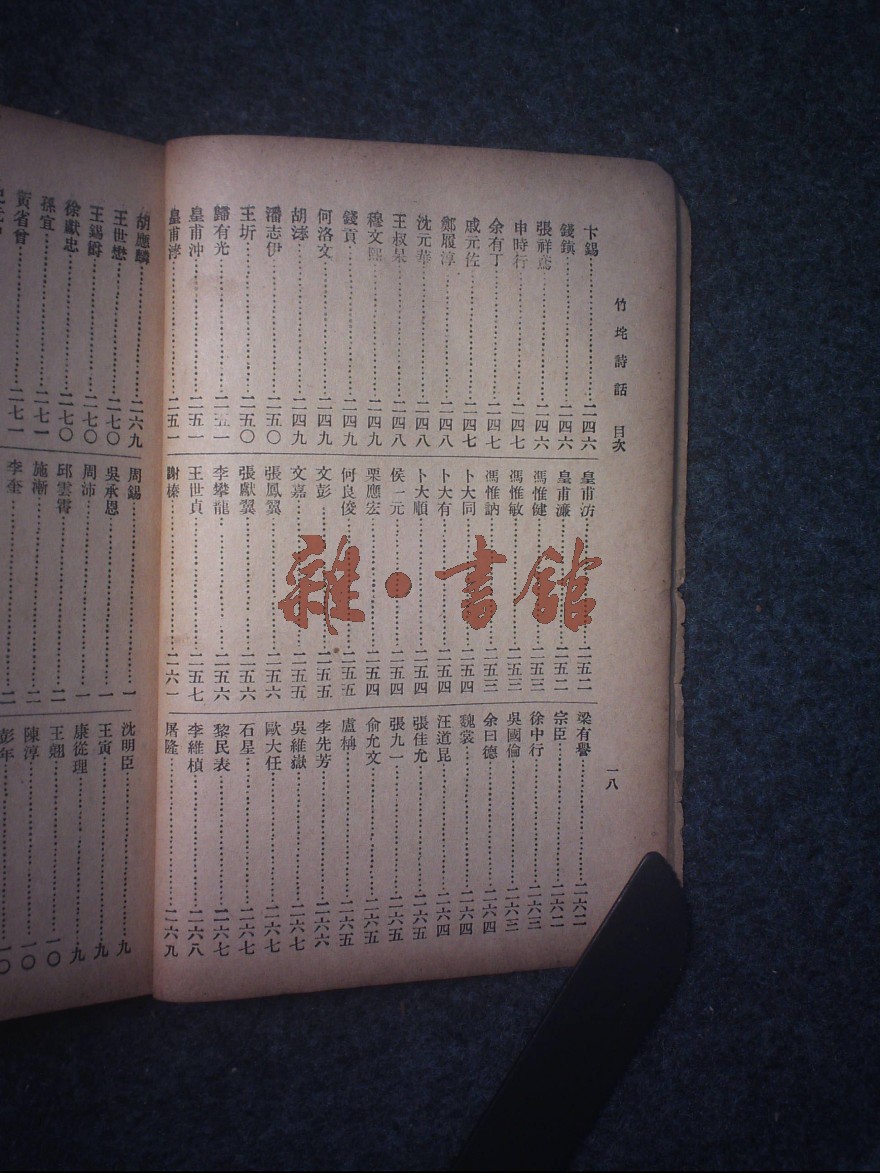 竹垞詩話 目次 一八
卞錫 二四六
錢鎮 二四六
張祥鳶 二四六
申時行 二四七
余有丁 二四七
戚元佐 二四七
鄭履淳 二四八
沈元華 二四八
王叔杲 二四八
穆文熙 二四九
錢貢 二四九
何洛文 二四九
胡涍 二四九
潘志伊 二五〇
王圻 二五〇
歸有光 二五一
皇甫沖 二五一
皇甫涍 二五一
皇甫汸 二五二
皇甫濂 二五二
馮惟健 二五三
馮惟敏 二五三
馮惟訥 二五三
卜大同 二五四
卜大有 二五四
卜大順 二五四
侯一元 二五四
栗應宏 二五四
何良俊 二五五
文彭 二五五
文嘉 二五五
張鳳翼 二五六
張獻翼 二五六
李攀龍 二五六
王世貞 二五七
謝榛 二六一
梁有譽 二六二
宗臣 二六二
徐中行 二六三
吳國倫 二六三
余曰德 二六四
魏裳 二六四
汪道昆 二六四
張佳允 二六五
張九一 二六五
俞允文 二六五
盧柟 二六五
李先芳 二六六
吳維嶽 二六七
歐大任 二六七
石星 二六七
黎民表 二六七
李維楨 二六八
屠隆 二六九
胡應麟 二六九
王世懋 二七〇
王錫爵 二七〇
徐獻忠 二七〇
孫宜 二七一
黃省曾 二七一
周錫 一
吳承恩 一
周沛 一
邱雲霄 二
施漸 二
李奎 二
沈明臣 九
王寅 九
康從理 九
王翹 一〇
陳淳 一〇
彭年 一〇
雜·書館